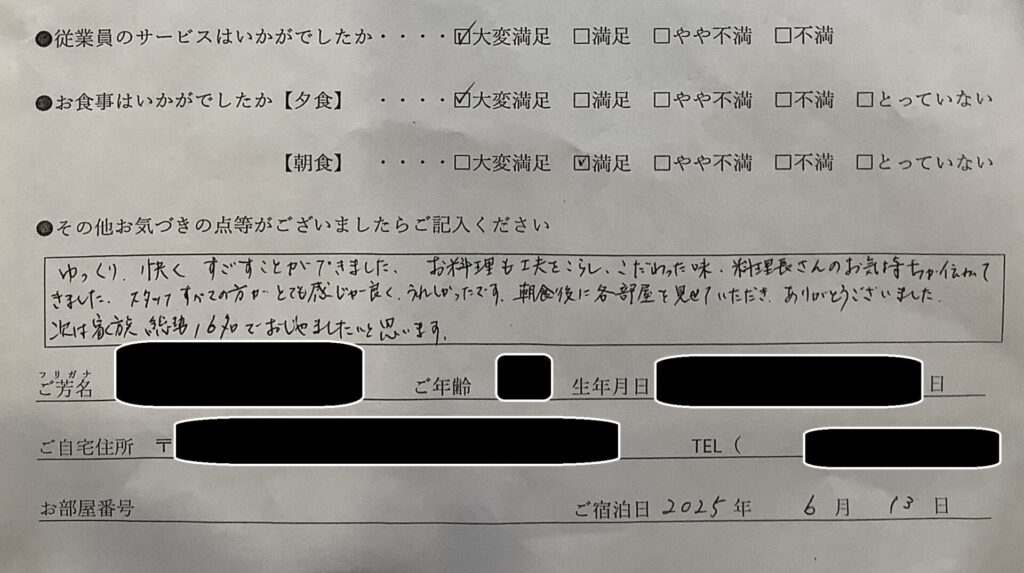 ●従業員のサービスはいかがでしたか・・・・☑大変満足 □満足 □やや不満 □不満
●お食事はいかがでしたか【夕食】 ・・・・☑大変満足 □満足 □やや不満 □不満 □とっていない
【朝食】 ・・・・□大変満足 ☑満足 □やや不満 □不満 □とっていない
●その他お気づきの点等がございましたらご記入ください
ゆっくり、快く すごすことができました、 お料理も工夫をこらし、こだわった味、料理長さんのお気持ちが伝わって
きました、スタッフすべての方がとても感じが良く、うれしかったです、朝食後に各部屋を見せていただき、ありがとうございました、
次は家族 総勢16名でおじゃましたいと思います、
フリガナ
ご芳名 ご年齢 生年月日 日
ご自宅住所 〒 TEL（
お部屋番号 ご宿泊日 2025 年 6 月 13 日